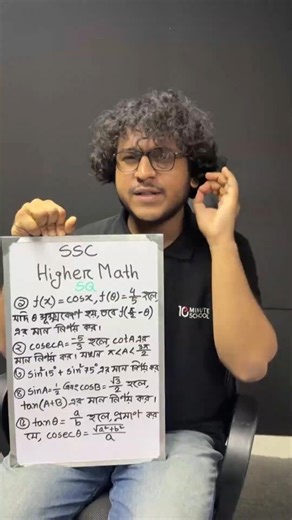 SSC
Higher Math
SQ
① f(x) = cosx, f(θ) = 4/5 হলে,
যদি θ সূক্ষ্মকোণ হয়, তবে f(π/2 - θ)
এর মান নির্ণয় কর।
② cosecA = -5/3 হলে, cotA এর
মান নির্ণয় কর। যখন π<A<3π/2
③ sin²15° + sin²75° এর মান নির্ণয় কর।
④ sinA = 1/2 এবং cosB = √3/2 হলে,
tan(A+B) এর মান নির্ণয় কর।
⑤ tanθ = a/b হলে, প্রমাণ কর
যে, cosecθ = √a²+b²/a
10 MINUTE
SCHOOL